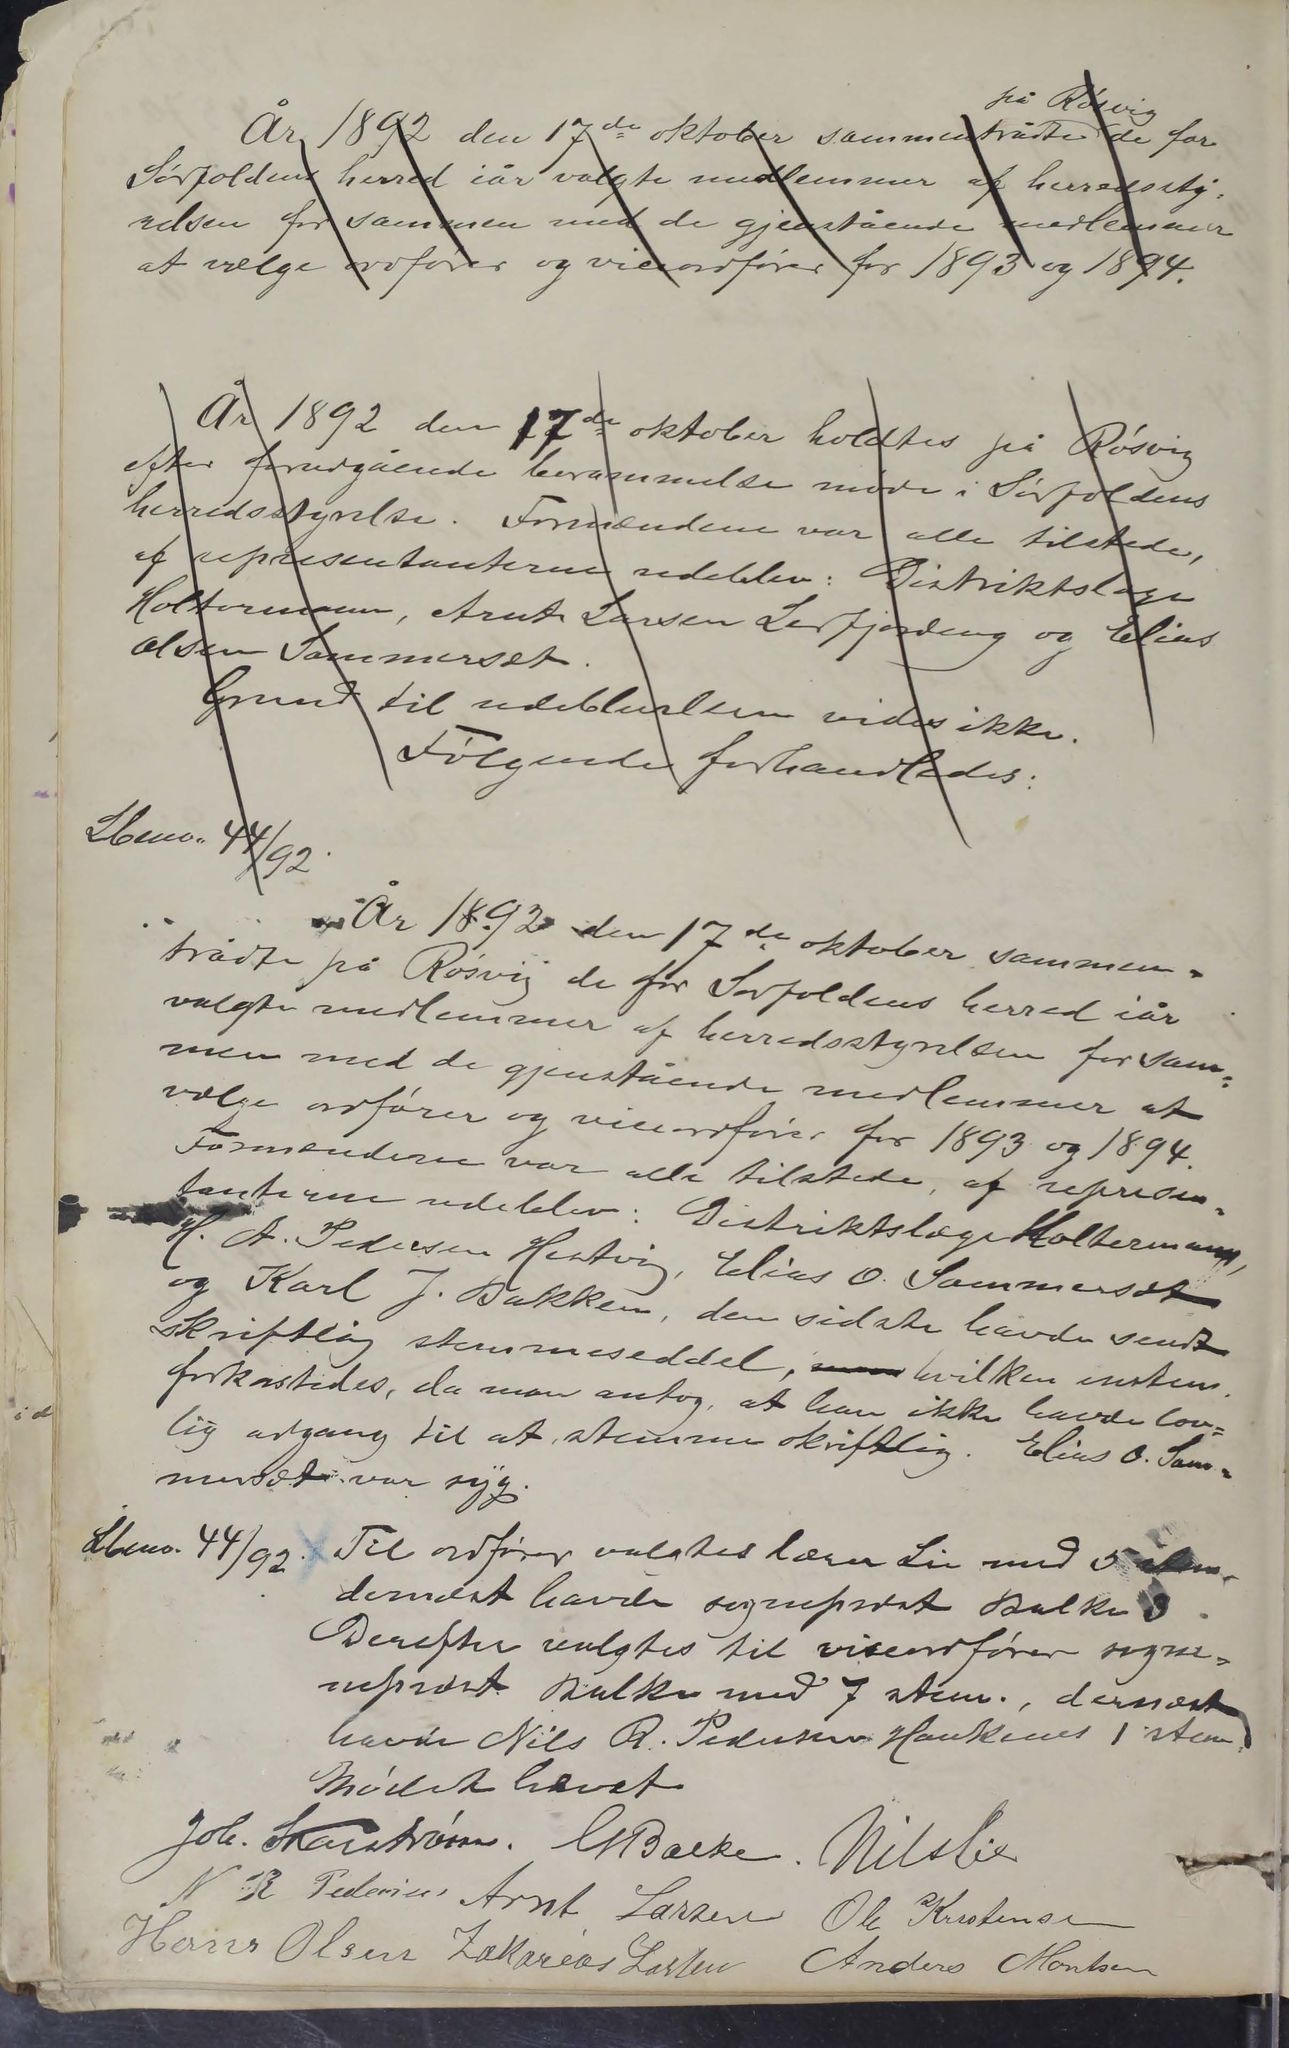 på Rösvig
År 1892 den 17de oktober sammentrådte de for
Sörfoldens herred iår valgte medlemmer af herredssty-
relsen for sammen med de gjenstående medlemmer
at vælge ordförer og viceordförer for 1893 og 1894.
År 1892 den 17de oktober holdtes på Rösvig
efter forudgående berammelse möde i Sörfoldens
herredsstyrelse. Formændene var alle tilstede,
af repræsentanterne udeblev: Distriktslæge
Holtermann, Arnt Larsen Leifjordeng og Elias
Olsen Sommerset.
Grund til udeblivelsen vides ikke.
Fölgende forhandledes:
Lbeno. 44/92.
År 1892 den 17de oktober sammen-
trådte på Rösvig de for Sörfoldens herred iår
valgte medlemmer af herredsstyrelsen for sam-
men med de gjenstående medlemmer at
vælge ordförer og viceordförer for 1893 og 1894.
Formændene var alle tilstede, af repræsen-
tanterne udeblev: Distriktslæge Holtermann,
H. A. Pedersen Hestvig, Elias O. Sommerset
og Karl J. Bakken, den sidste havde sendt
skriftlig stemmeseddel, hvilken enstem.
forkastedes, da man antog, at han ikke havde lov-
lig adgang til at stemme skriftlig. Elias O. Som-
merset var syg.
Lbeno. 44/92. Til ordförer valgtes lærer Lie med 5 stem.
dernæst havde sognepræst Balke 3.
Derefter valgtes til viceordförer sogne-
nepræst Balke med 7 stem., dernæst
havde Nils R. Pedersen Hankenes 1 stem.
Mödet hævet
Joh. Skarström. Balke. Nils Lie
N R Pedersen Arnt Larsen Ole Kristensen
Hans Olsen Zakarias Larsen Anders Montsen